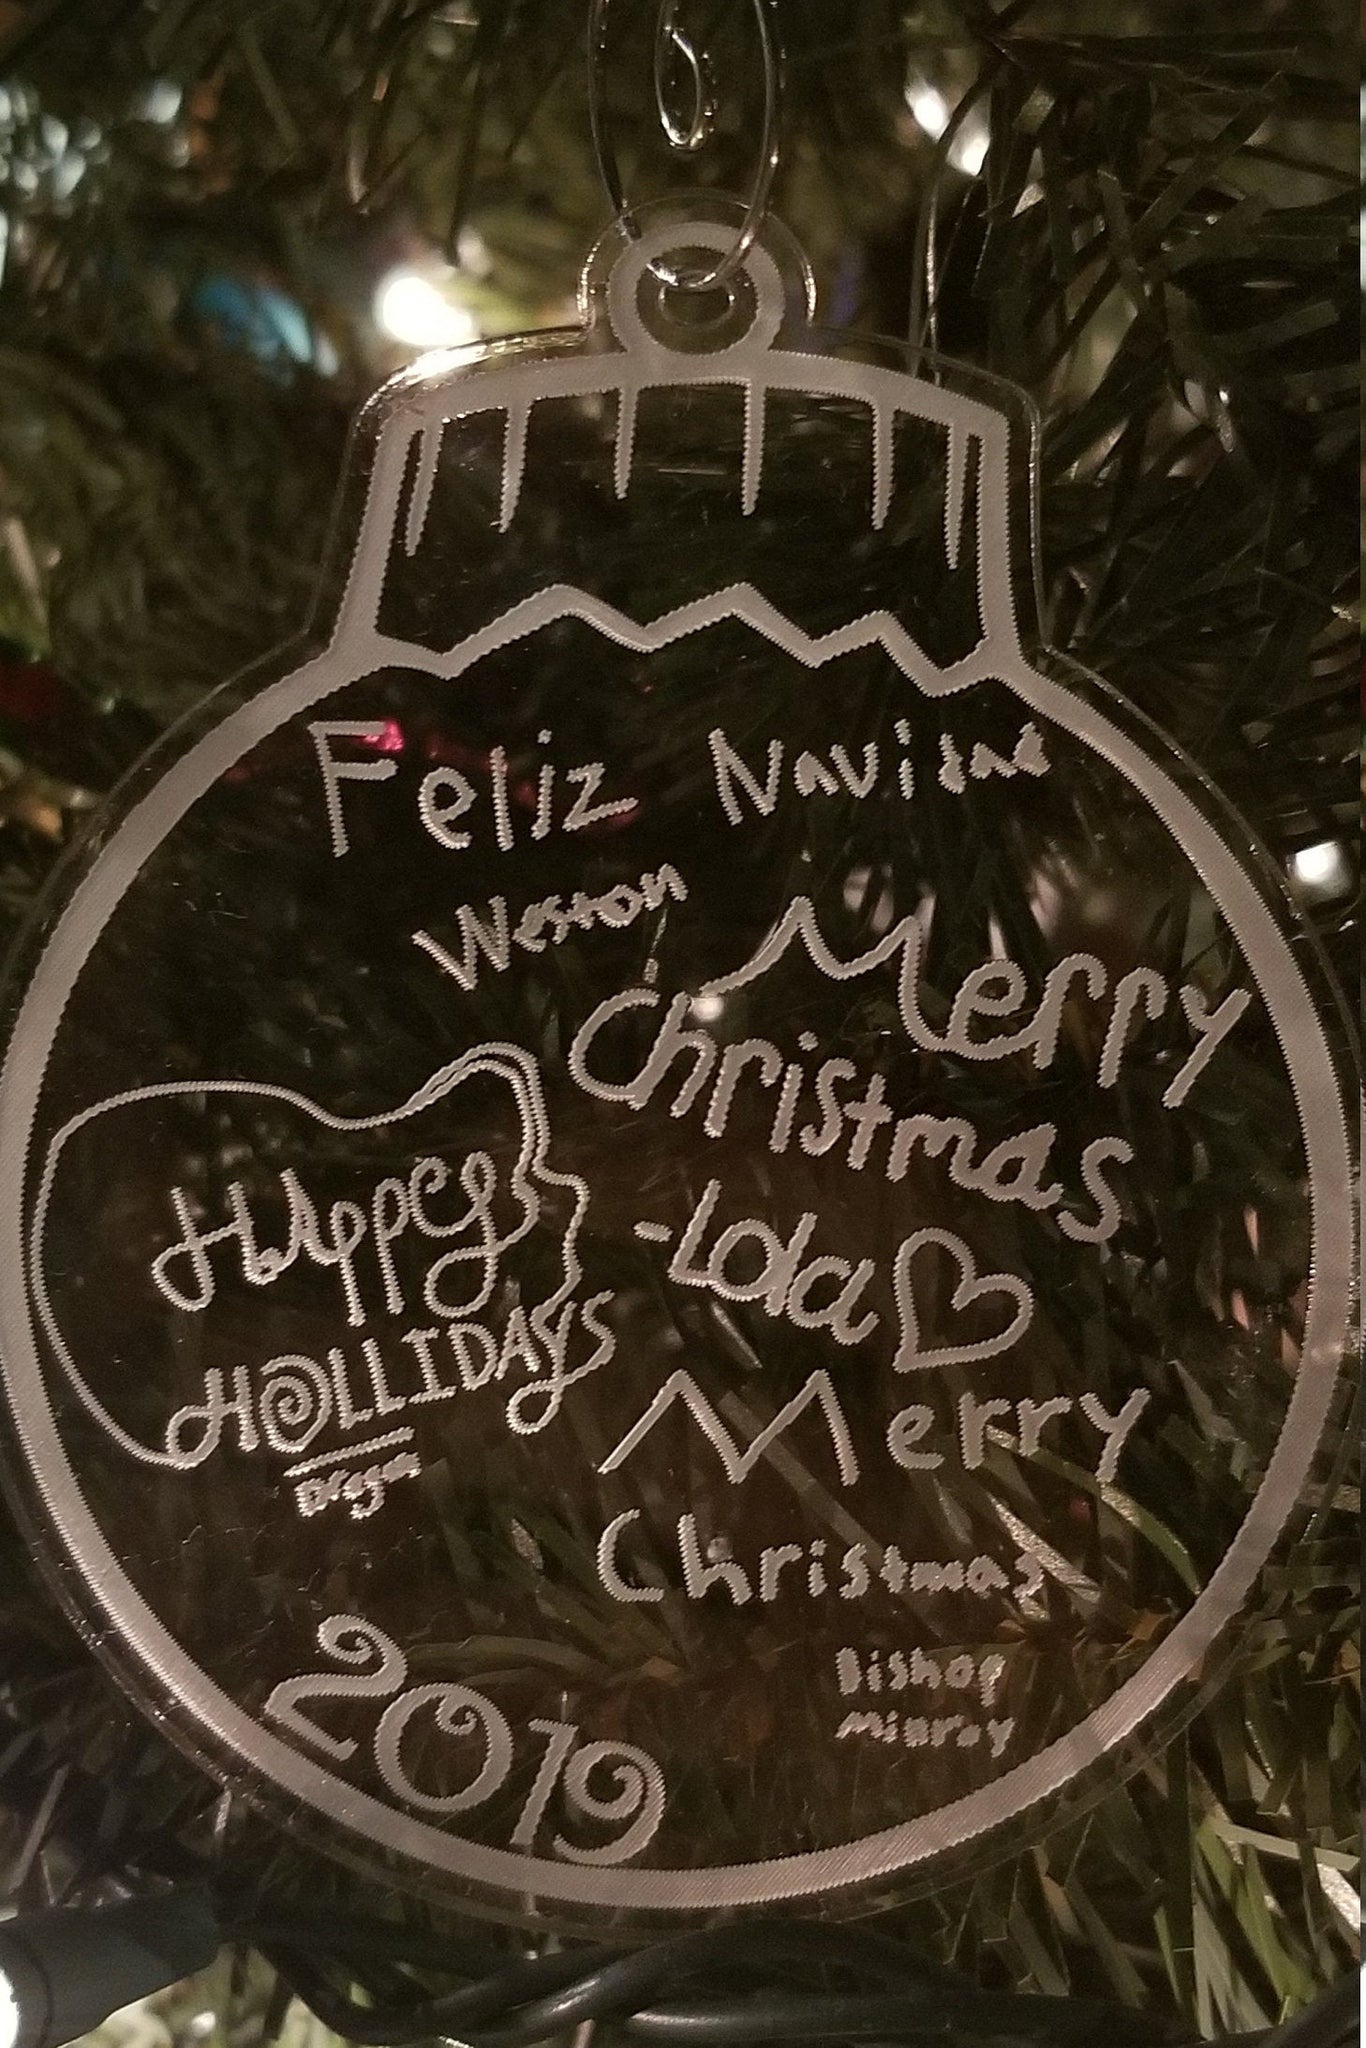 Feliz Navidad
Weston
Merry
Christmas
-Lola
Happy
HOLLIDAYS
Merry
Christmas
Bishop
2019